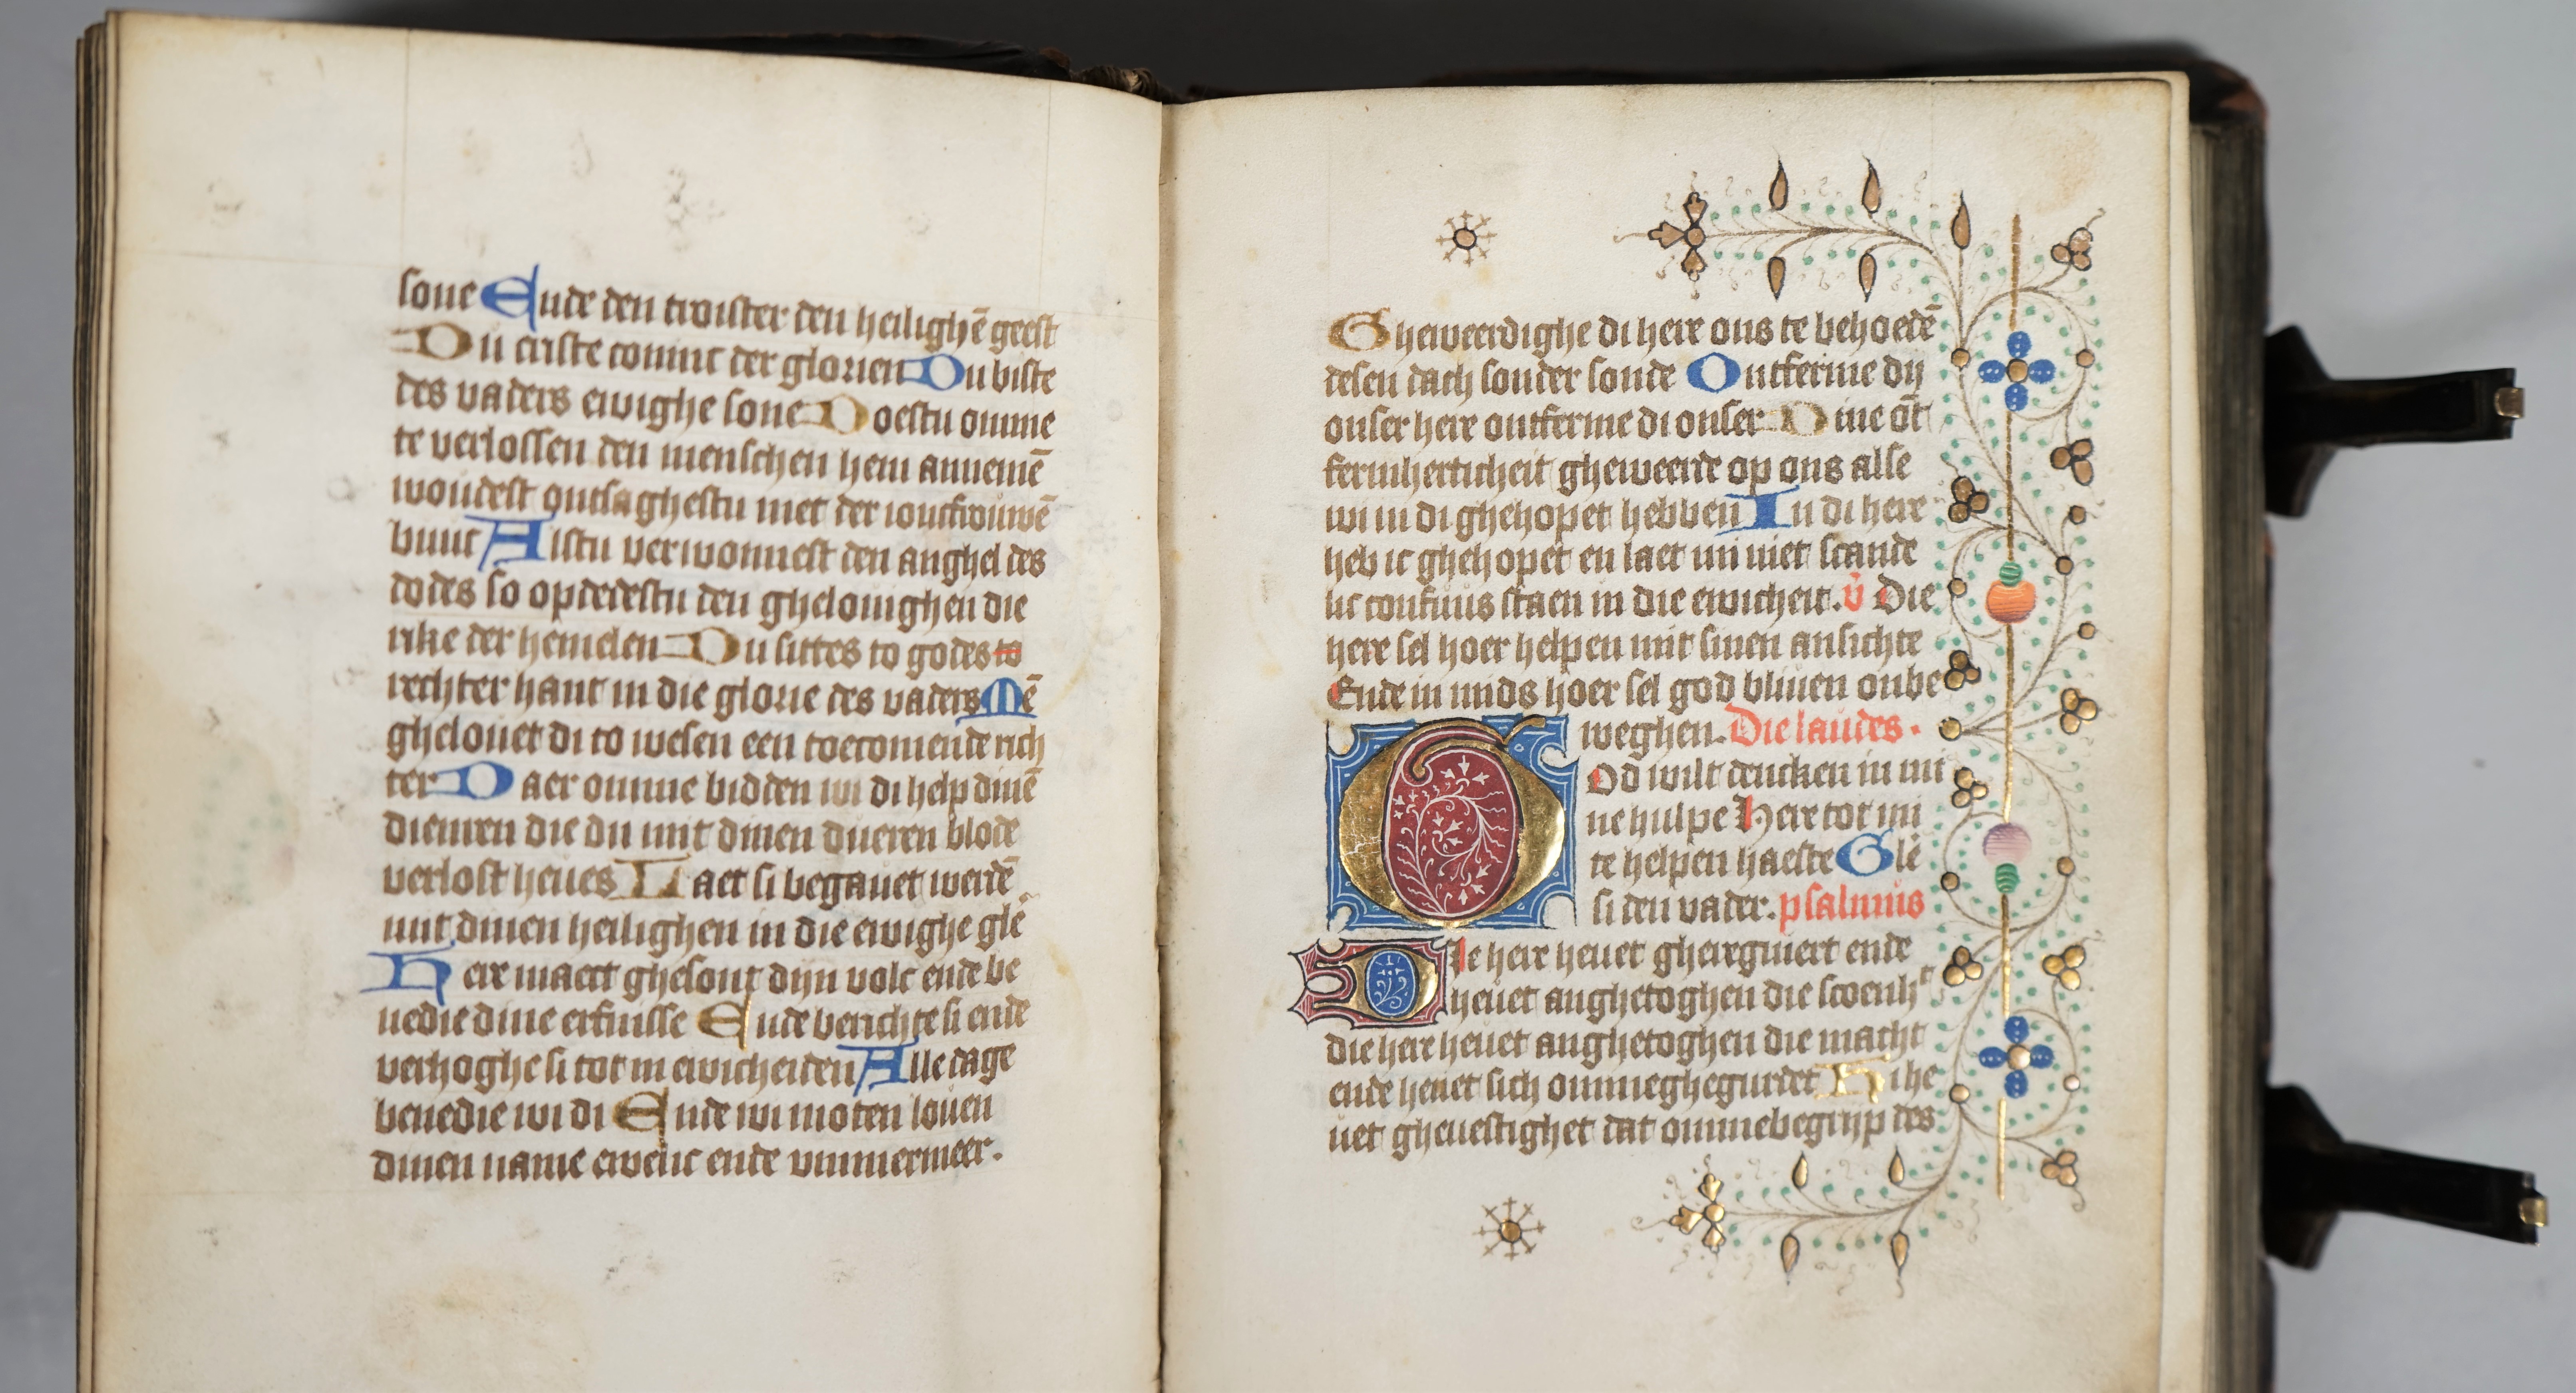 sone Ende den troister den heilighē geest
Du criste coninc der glorien Du biste
des vaders ewighe sone Doestu omme
te verlossen den menschen hem annemē
woudest ontsaghestu niet der ioncfrouwē
buuc Alstu verwonnest den anghel des
dodes so opdedestu den ghelouighen die
rike der hemelen Du sittes to godes to
rechter hant in die glorie des vaders Mē
ghelouet di to wesen een toecomende rich
ter Daer omme bidden wi di help dinē
dienren die du mit dinen dueren blode
verlost heues Laet si begauet werdē
mit dinen heilighen in die ewighe glē
Here maect ghesont dijn volc ende be
nedie dine erfnisse Ende berichte si ende
verhoghe si tot in ewicheiden Alle dage
benedie wi di Ende wi moten louen
dinen name ewelic ende ummermeer.
Gheweerdighe di here ons te behoedē
desen dach sonder sonde Ontferme dij
onser here ontferme di onser Dine ōt
fermherticheit ghewerde op ons alse
wi in di ghehopet hebben In di here
heb ic ghehopet en laet mi niet scande
lic confuus staen in die ewicheit. v̄ Die
here sel hoer helpen mit sinen ansichte
Ende in mids hoer sel god bliuen onbe
weghen. Die laudes.
God wilt dencken in mi
ne hulpe Here tot mi
te helpen haeste Glē
si den vader. psalmus
Die here heuet gheregniert ende
heuet anghetoghen die scoenhᵗ
die here heuet anghetoghen die macht
ende heuet sich ommeghegurdet Hi he
uet gheuestighet dat ommebegrijp des